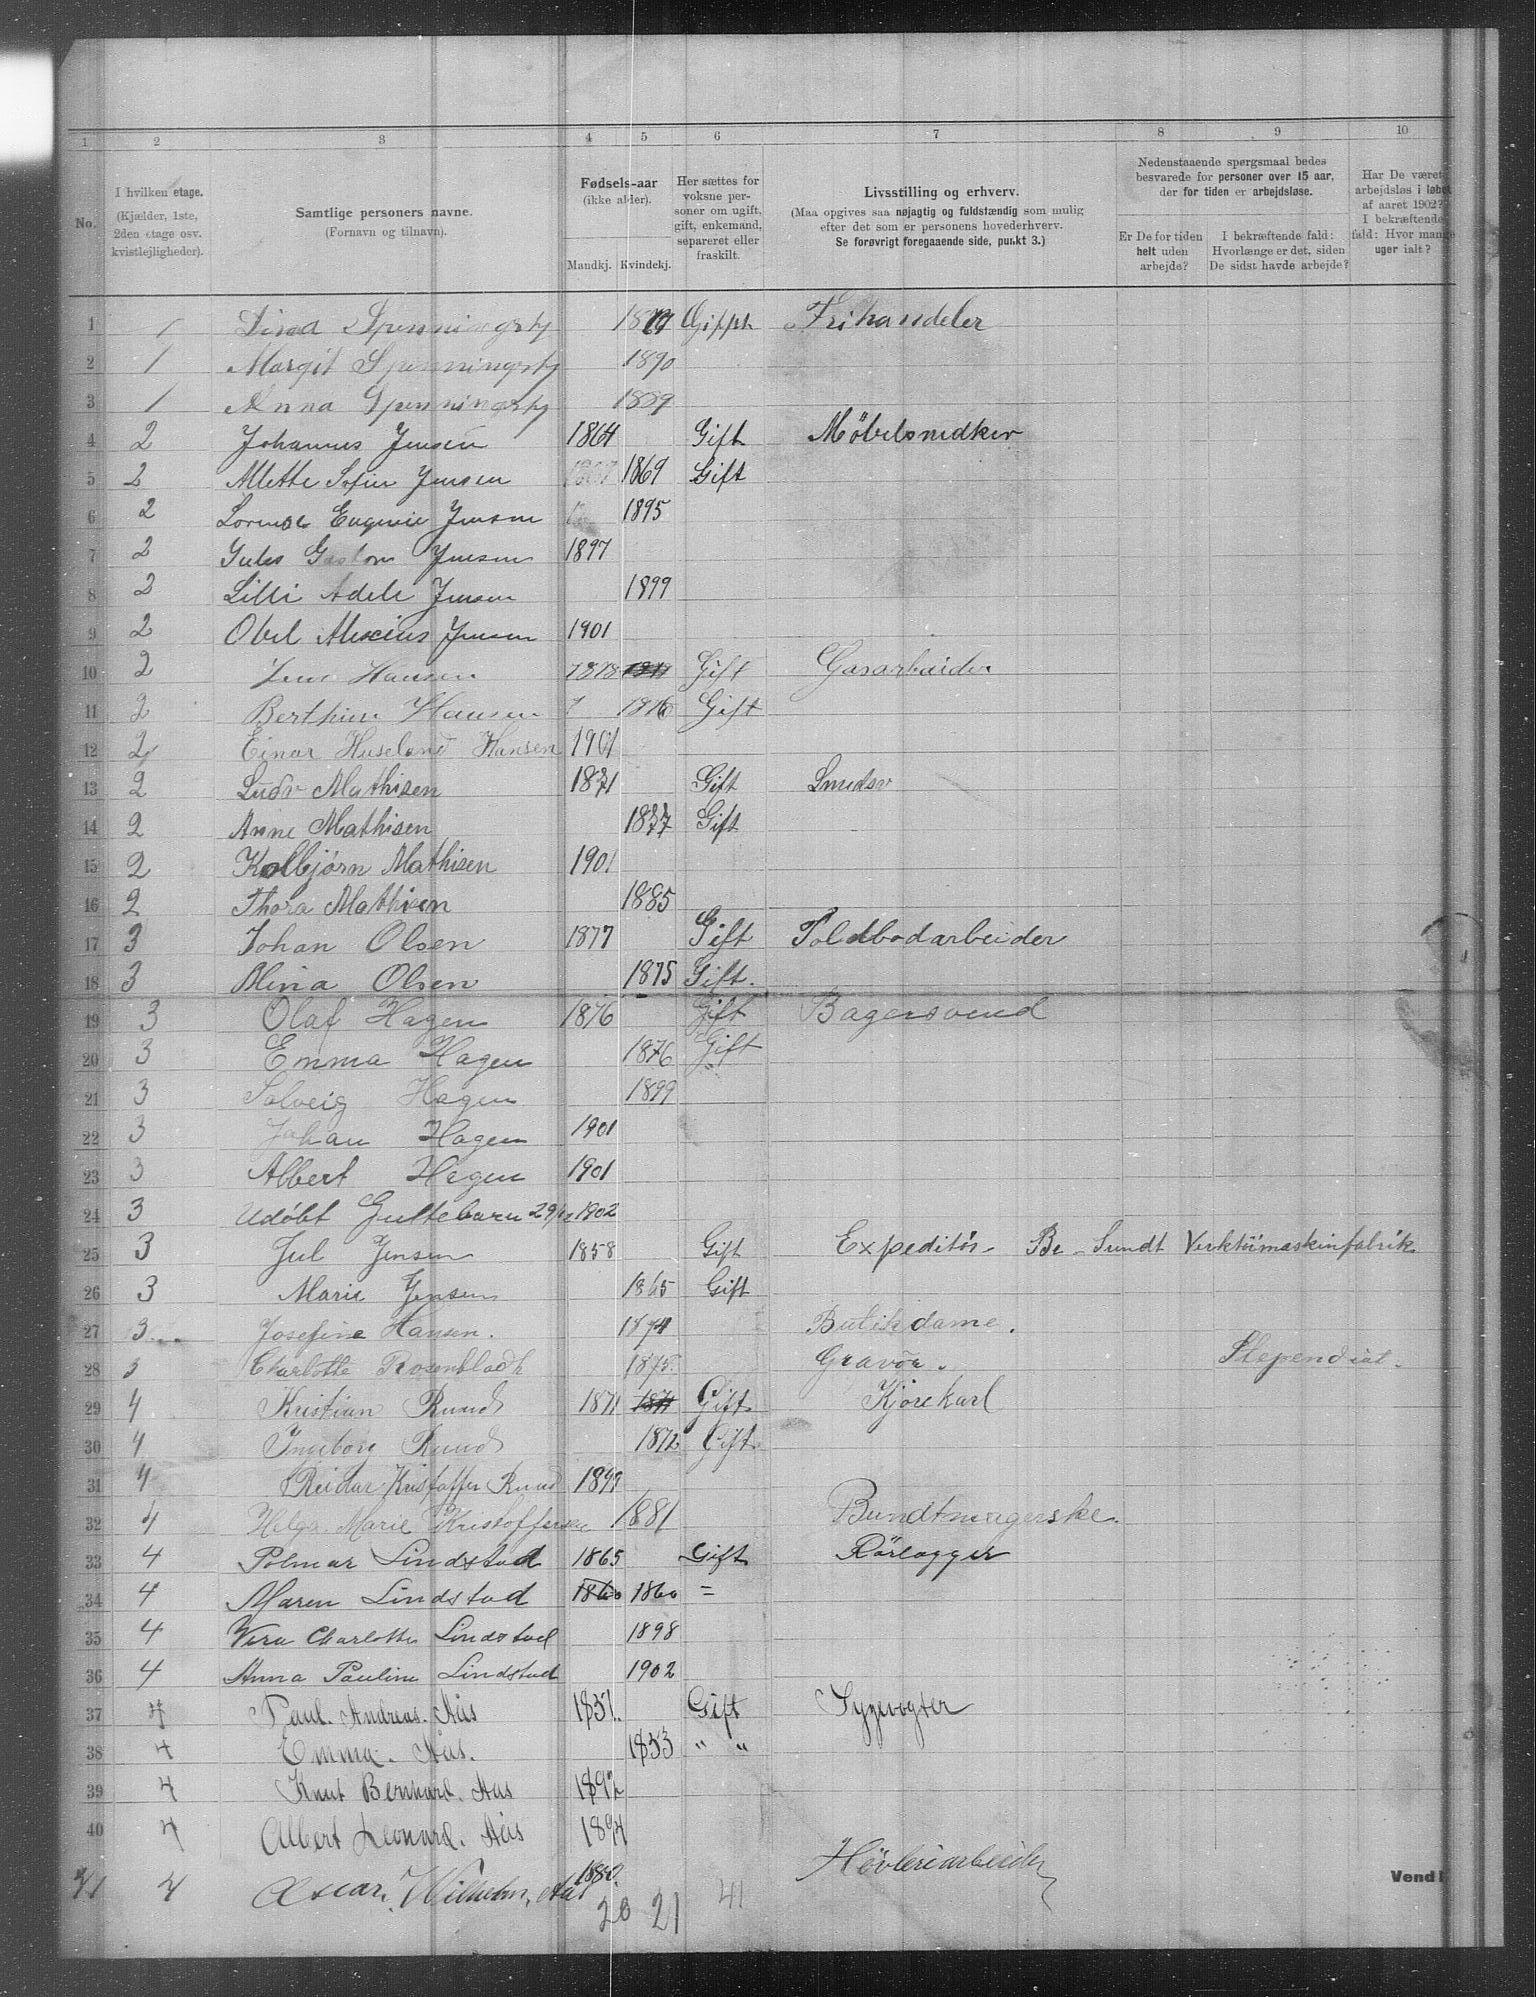 1 2 3 4 5 6 7 8 9 10
No.
I hvilken etage.
(Kjælder, 1ste,
2den etage osv.
kvistlejligheder).
Samtlige personers navne.
(Fornavn og tilnavn).
Fødsels-aar
(ikke alder).
Mandkj. Kvindekj.
Her sættes for
voksne per-
soner om ugift,
gift, enkemand,
separeret eller
fraskilt.
Livsstilling og erhverv.
(Maa opgives saa nøjagtig og fuldstændig som mulig
efter det som er personens hovederhverv.
Se forøvrigt foregaaende side, punkt 3.)
Nedenstaaende spørgsmaal bedes
besvarede for personer over 15 aar,
der for tiden er arbejdsløse.
Er De for tiden
helt uden
arbejde?
I bekræftende fald:
Hvorlænge er det, siden
De sidst havde arbejde?
Har De været
arbejdsløs i løbet
af aaret 1902?
I bekræftende
fald: Hvor mange
uger ialt?
1 1 Dina Spenningsby Gipht Frihandeler
2 1 Margit Spenningsby 1890
3 1 Anna Spenningsby 1889
4 2 Johannes Jensen 1864 Gift Møbelsnedker
5 2 Mette Sofie Jensen 1869 Gift
6 2 Lorense Eugenie Jensen 1895
7 2 Jules Gaston Jensen 1897
8 2 Lilli Adele Jensen 1899
9 2 Obel Alexius Jensen 1901
10 2 Jens Hansen 1878 Gift Gasarbeider
11 2 Berthine Hansen 1876 Gift
12 2 Einar Huseland Hansen 1901
13 2 Ludv Mathisen 1871 Gift Smedsv
14 2 Anne Mathisen 1877 Gift
15 2 Kolbjørn Mathisen 1901
16 2 Thora Mathisen 1885
17 3 Johan Olsen 1877 Gift Toldbodarbeider
18 3 Mina Olsen 1875 Gift.
19 3 Olaf Hagen 1876 Gift Bagersvend
20 3 Emma Hagen 1876 Gift
21 3 Solveig Hagen 1899
22 3 Johan Hagen 1901
23 3 Albert Hagen 1901
24 3 Udøbt Guttebarn 29/12 1902
25 3 Jul Jensen 1858 Gift Expeditör Be Sundt Verktöimaskinfabrik
26 3 Marie Jensen 1865 Gift
27 3 Josefine Hansen. 1874 Butikdame.
28 3 Charlotte Rosenbladh 1875. Gravör. Stependiat.
29 4 Kristian Ruud 1871 1871 Gift Kjørekarl
30 4 Ingeborg Ruud 1872 Gift
31 4 Reidar Kristoffer Ruud 1899
32 4 Helga Marie Kristoffersen 1881 Bundtmagerske.
33 4 Polmar Lindstad 1865 Gift Rörlægger
34 4 Maren Lindstad 1860 1860 =
35 4 Vera Charlotte Lindstad 1898
36 4 Anna Pauline Lindstad 1902
37 4 Paul. Andreas. Aas 1851. Gift Sygevogter
38 4 Emma. Aas. 1853 " "
39 4 Knut Bernhard. Aas 1892
40 4 Albert Leonard. Aas 1894
41 4 Oscar. Wilhelm. Aas 1882. Høvleriarbeider
20 21 41
Vend!